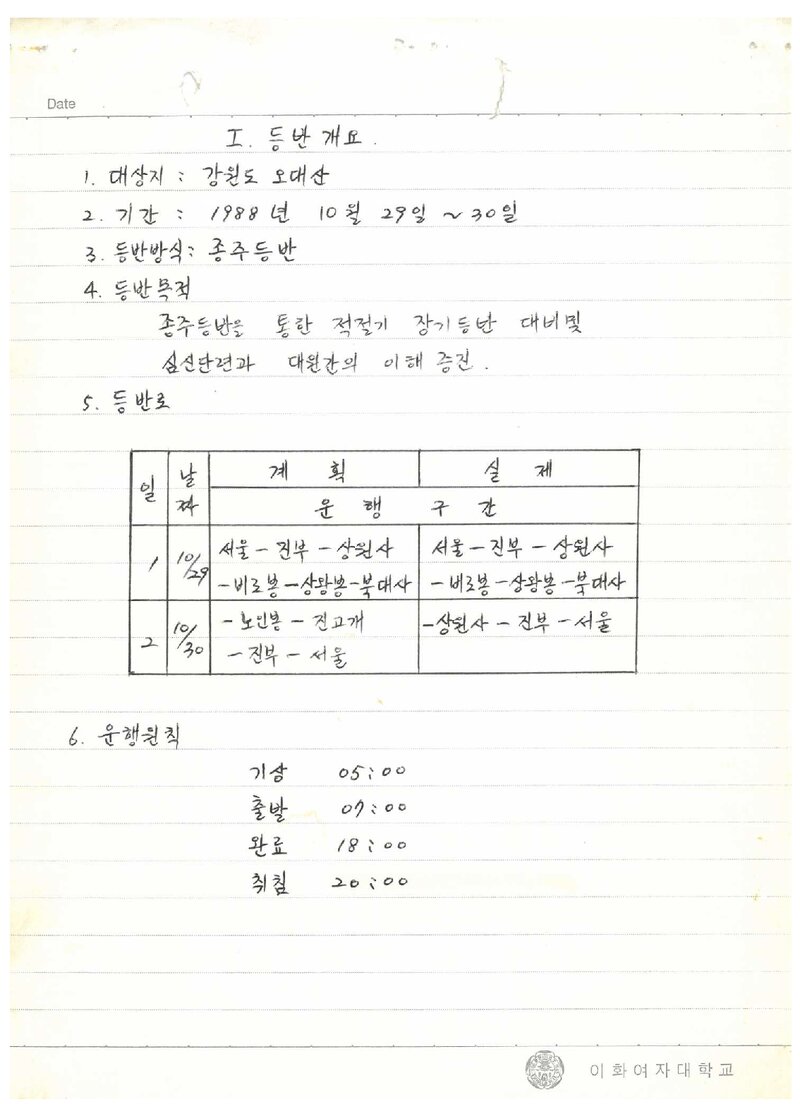 Date
I. 등반개요.
1. 대상지 : 강원도 오대산
2. 기간 : 1988년 10월 29일 ~ 30일
3. 등반방식 : 종주등반
4. 등반목적
종주등반을 통한 적설기 장기등반 대비 및
심신단련과 대원간의 이해 증진.
5. 등반로
일 날짜 계획 실제
운행 구간
1 10/29 서울 - 진부 - 상원사 서울 - 진부 - 상원사
- 비로봉 - 상왕봉 - 북대사 - 비로봉 - 상왕봉 - 북대사
2 10/30 - 노인봉 - 진고개 - 상원사 - 진부 - 서울
- 진부 - 서울
6. 운행원칙
기상 05:00
출발 07:00
완료 18:00
취침 20:00
이화여자대학교